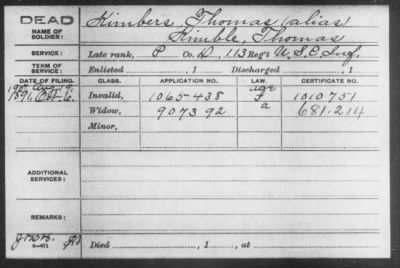 DEAD
Kimbers, Thomas (alias
NAME OF SOLDIER:
Kimble, Thomas
SERVICE:
Late rank, P Co. D, 113 Reg't U.S.C. Inf.
TERM OF SERVICE:
Enlisted , 1 Discharged , 1
DATE OF FILING. CLASS. APPLICATION NO. LAW. CERTIFICATE NO.
Aug. 19, age
1891, Oct. 6. Invalid, 1065438 1010751
Widow, 907392 a 681,214
Minor,
ADDITIONAL SERVICES:
REMARKS:
Died , 1 , at